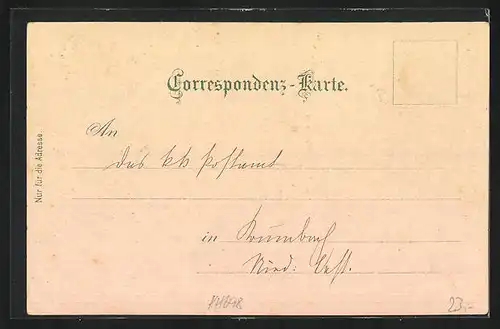 Correspondenz-Karte.
An
das kk Postamt
in Krumbach
Nied: Oest.
Nur für die Adresse
23,-